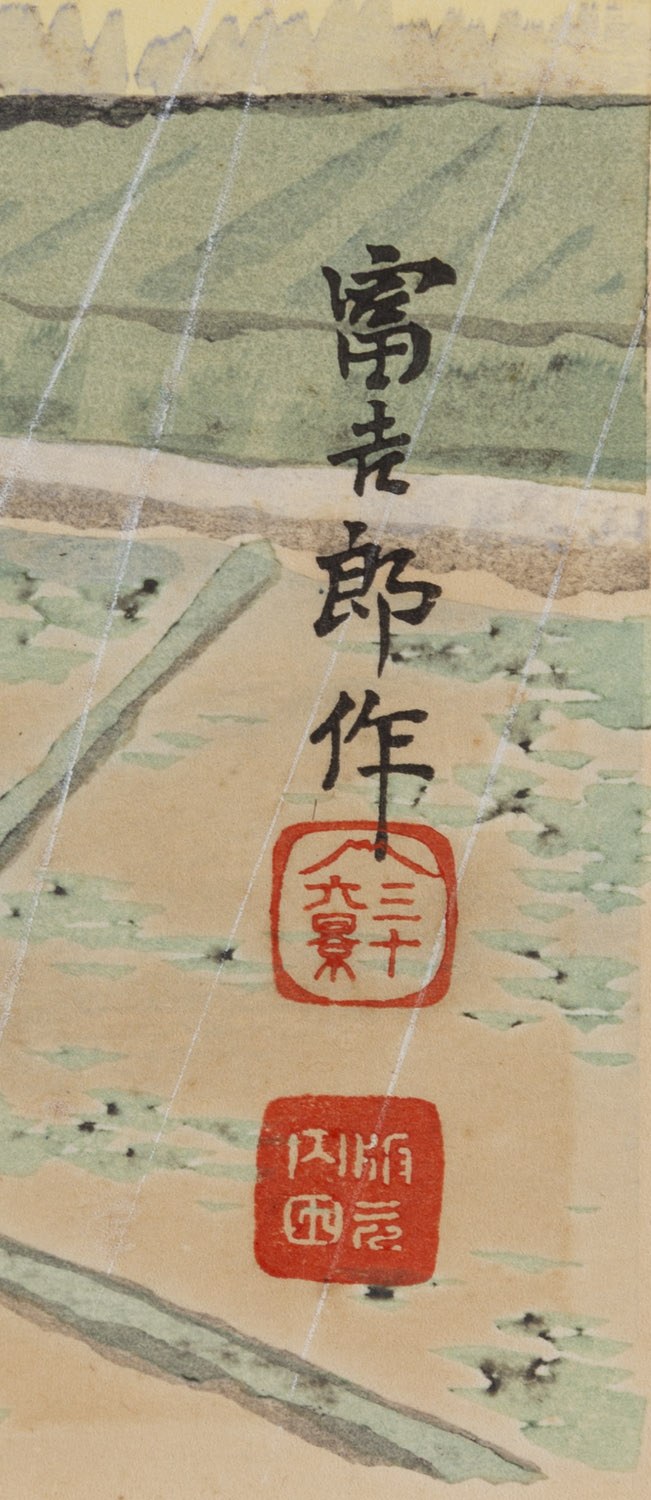 富吉郎作
三十
六景
版元
内田